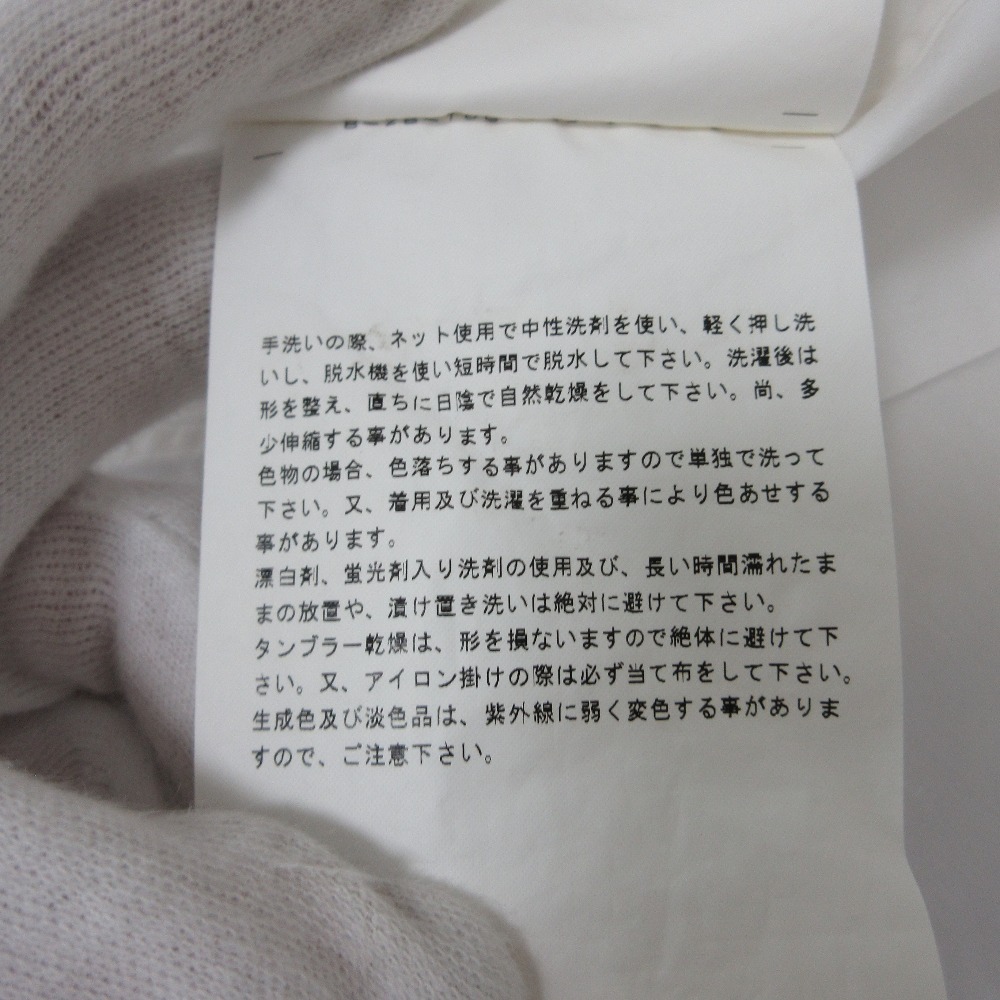 手洗いの際、ネット使用で中性洗剤を使い、軽く押し洗
いし、脱水機を使い短時間で脱水して下さい。洗濯後は
形を整え、直ちに日陰で自然乾燥をして下さい。尚、多
少伸縮する事があります。
色物の場合、色落ちする事がありますので単独で洗って
下さい。又、着用及び洗濯を重ねる事により色あせする
事があります。
漂白剤、蛍光剤入り洗剤の使用及び、長い時間濡れたま
まの放置や、漬け置き洗いは絶対に避けて下さい。
タンブラー乾燥は、形を損ないますので絶体に避けて下
さい。又、アイロン掛けの際は必ず当て布をして下さい。
生成色及び淡色品は、紫外線に弱く変色する事がありま
すので、ご注意下さい。